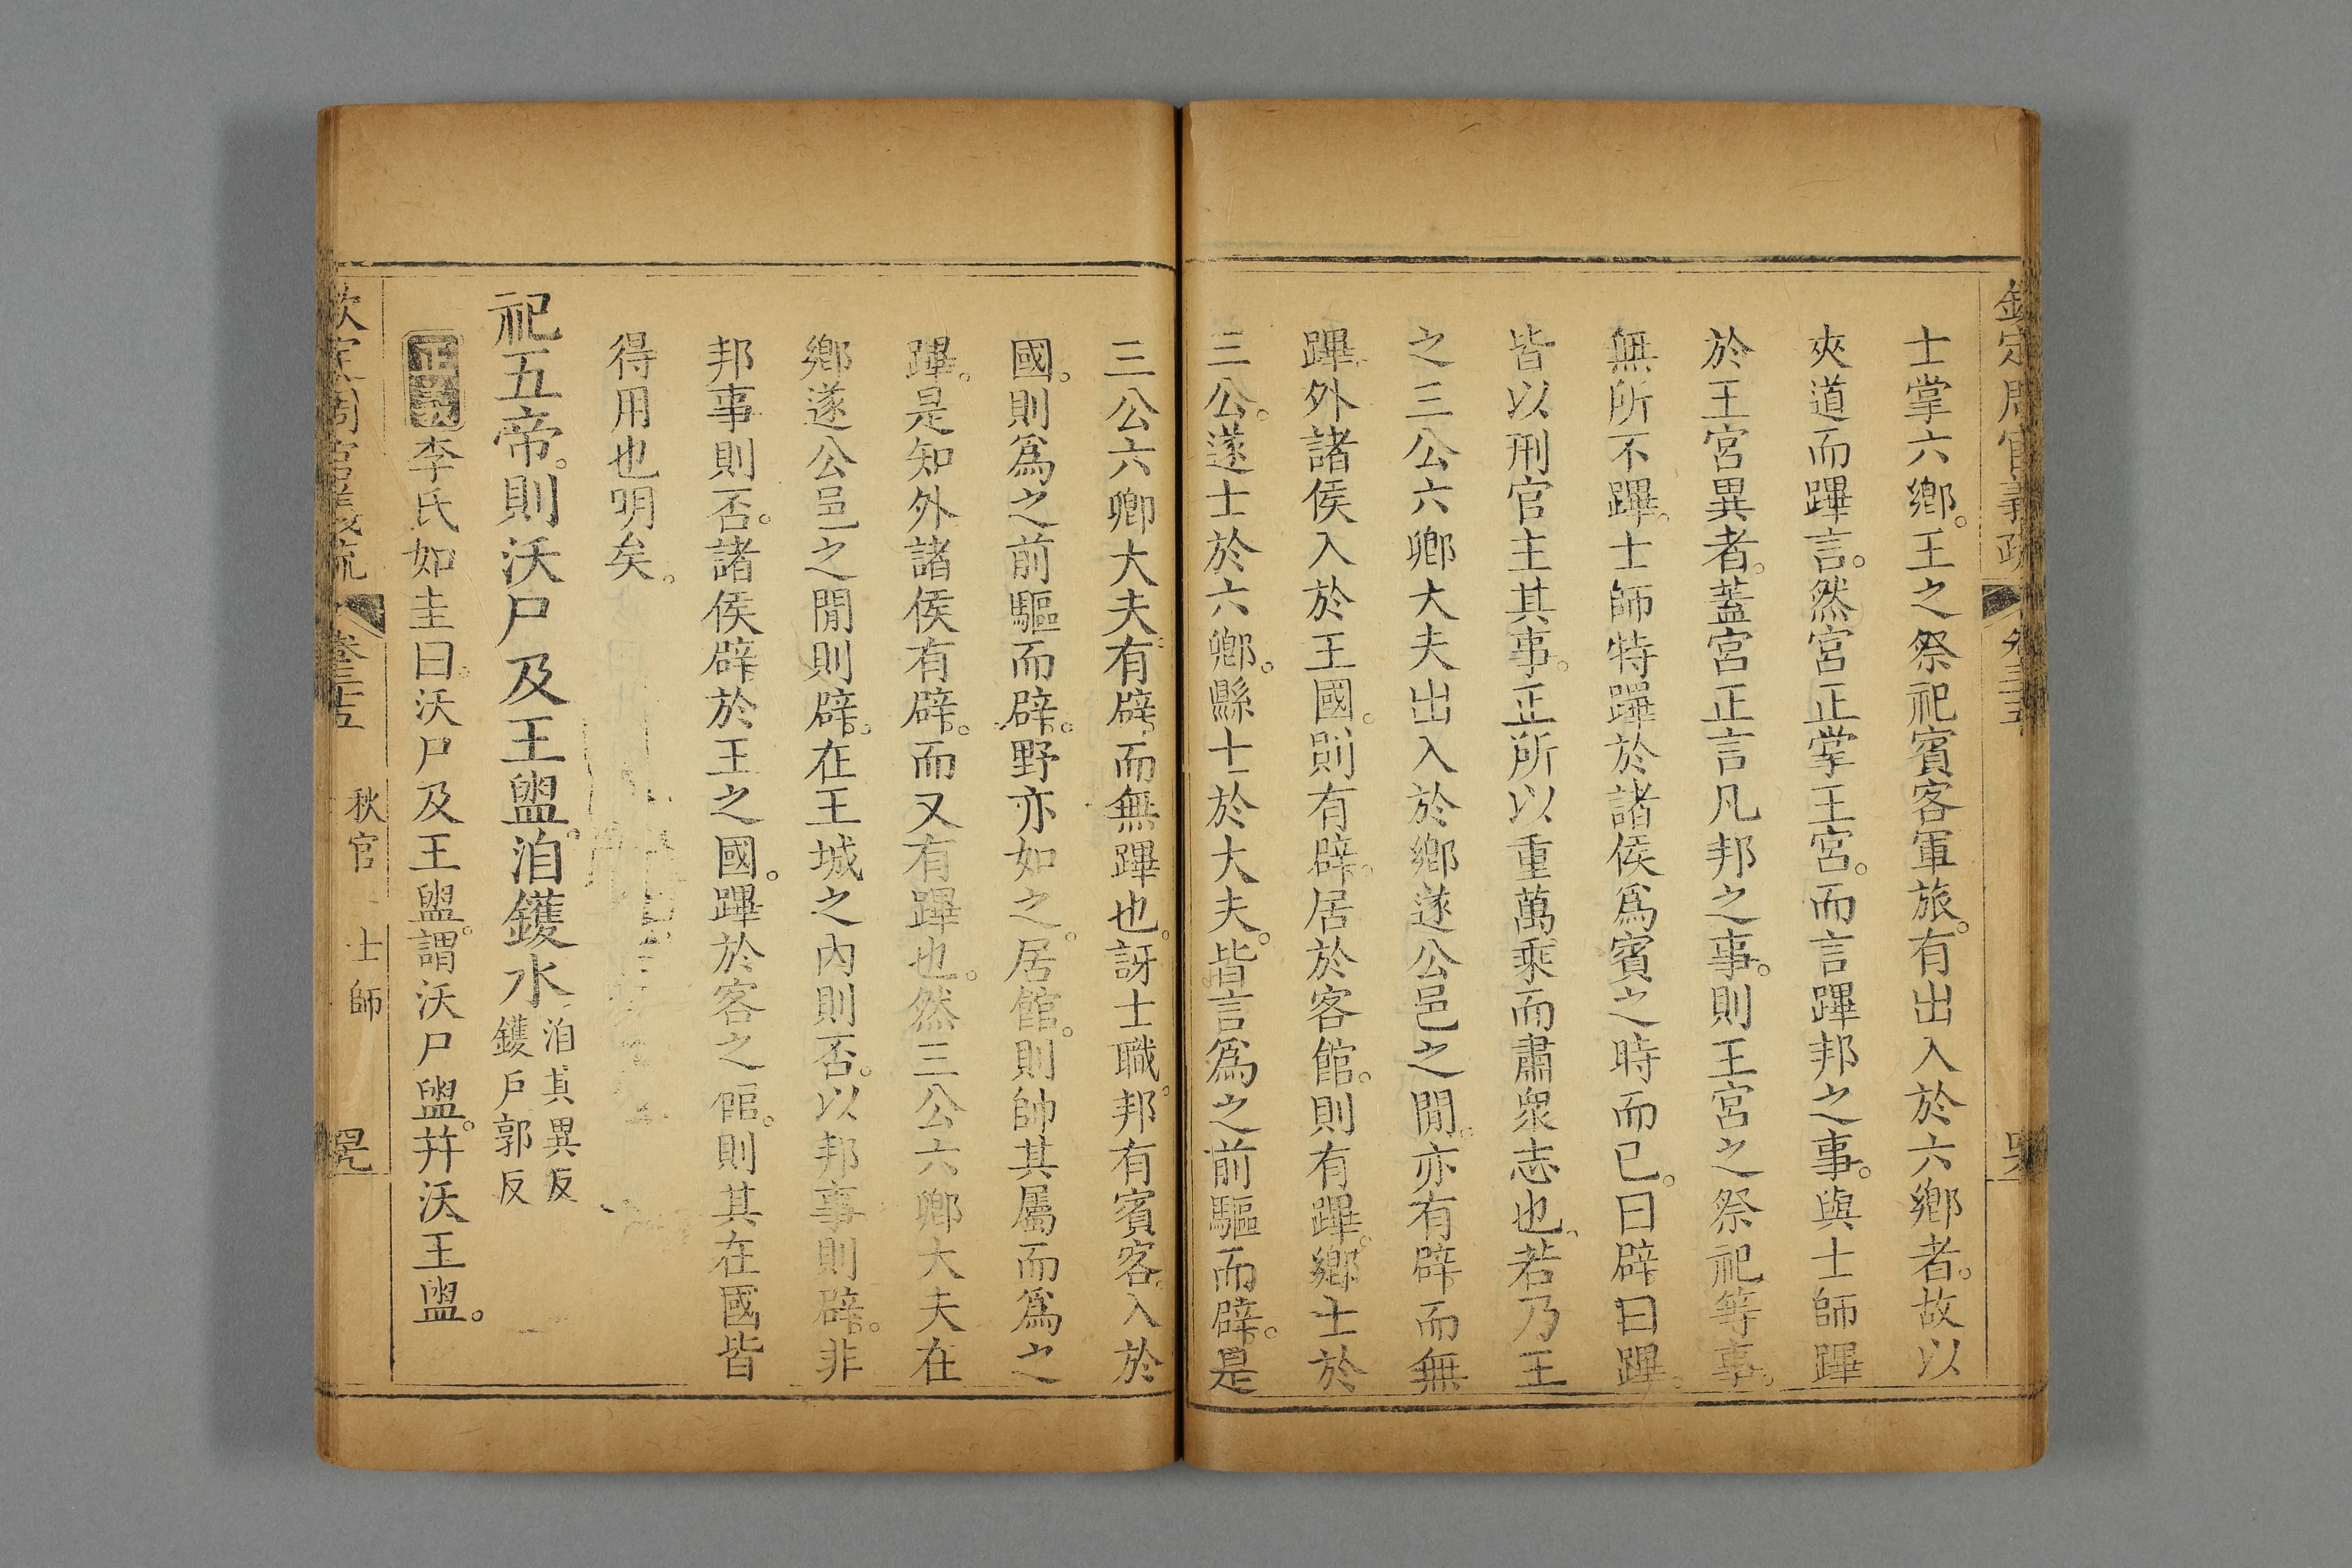 欽定周官義疏 卷三十五
士掌六鄉。王之祭祀賓客軍旅。有出入於六鄉者。故以
夾道而蹕言。然宮正掌王宮。而言蹕邦之事。與士師蹕
於王宮異者。蓋宮正言凡邦之事。則王宮之祭祀等事。
無所不蹕。士師特蹕於諸侯爲賓之時而已。曰辟曰蹕。
皆以刑官主其事。正所以重萬乘而肅眾志也。若乃王
之三公六卿大夫出入於鄉遂公邑之閒。亦有辟而無
蹕。外諸侯入於王國。則有辟。居於客館。則有蹕。鄉士於
三公。遂士於六鄉。縣士於大夫。皆言爲之前驅而辟。是
三公六卿大夫有辟而無蹕也。訝士職。邦有賓客。入於
國。則爲之前驅而辟。野亦如之。居館。則帥其屬而爲之
蹕。是知外諸侯有辟。而又有蹕也。然三公六卿大夫在
鄉遂公邑之閒則辟。在王城之內則否。以邦事則辟。非
邦事則否。諸侯辟於王之國。蹕於客之館。則其在國皆
得用也明矣。
祀五帝。則沃尸及王盥。洎鑊水
洎其異反
鑊戶郭反
正義 李氏如圭曰。沃尸及王盥。謂沃尸盥。并沃王盥。
欽定周官義疏 卷三十五 秋官 士師